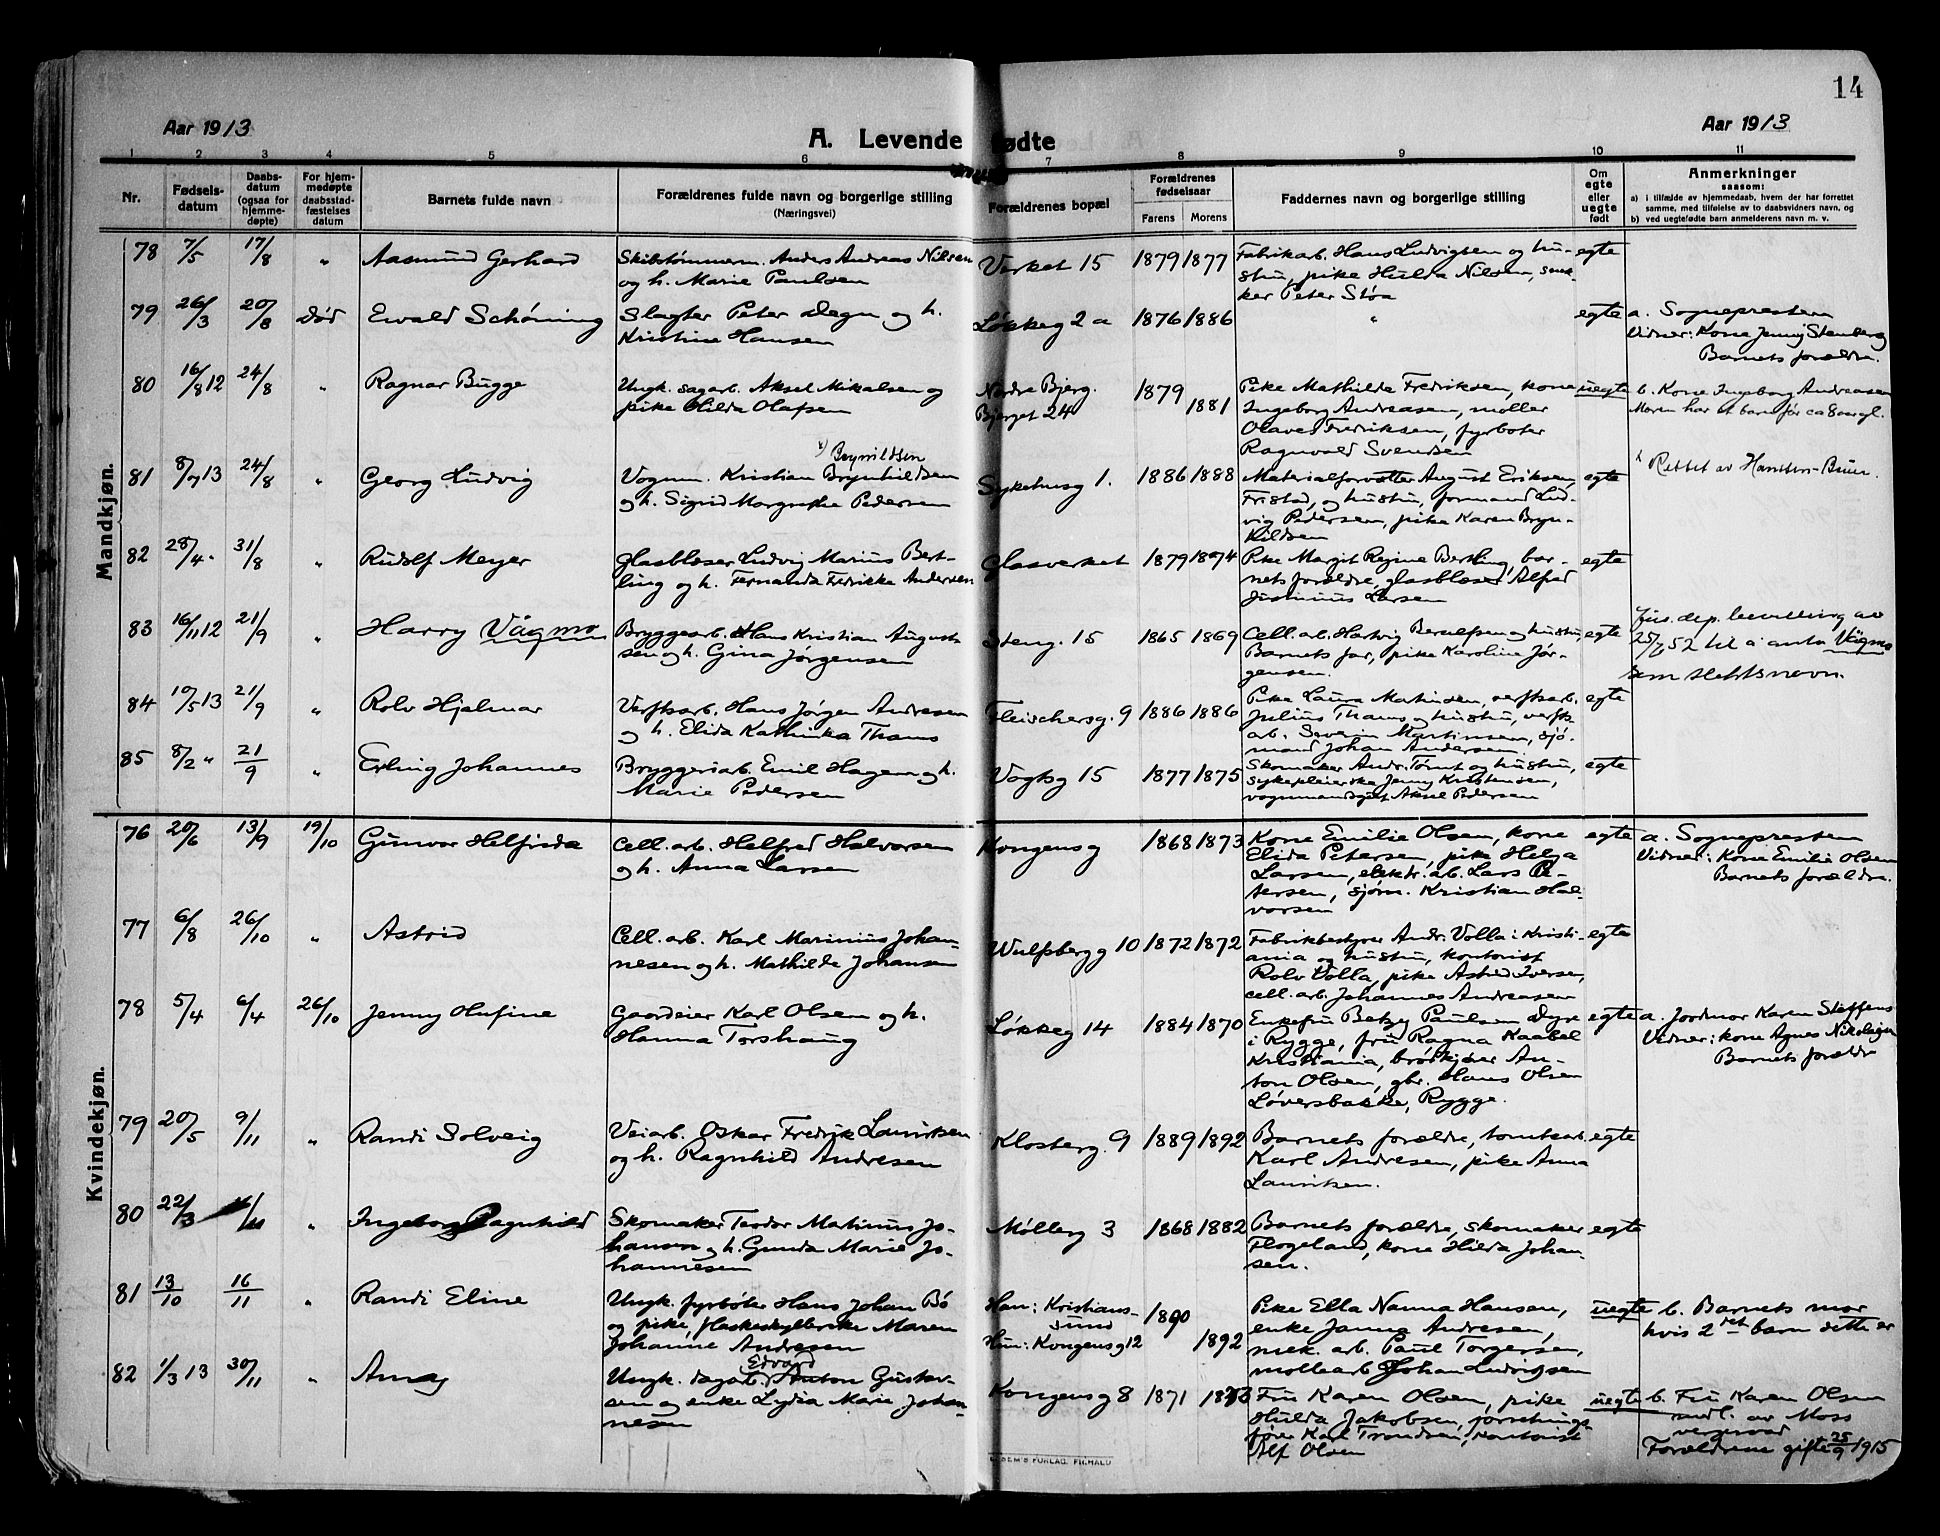 14
Aar 1913
A. Levende fødte
Aar 1913
1 2 3 4 5 6 7 8 9 10 11
Nr.
Fødsels-
datum
Daabs-
datum
(ogsaa for
hjemme-
døpte)
For hjem-
medøpte
daabsstad-
fæstelses
datum
Barnets fulde navn
Forældrenes fulde navn og borgerlige stilling
(Næringsvei)
Forældrenes bopæl
Forældrenes
fødselsaar
Farens Morens
Faddernes navn og borgerlige stilling
Om
egte
eller
uegte
født
Anmerkninger
saasom:
a) i tilfælde av hjemmedaab, hvem der har forrettet
samme, med tilføielse av to daabsvidners navn, og
b) ved uegtefødte barn anmelderens navn m. v.
Mandkjøn.
78 7/5 17/8 " Aasmund Gerhard
Skibstømmerm. Anders Andreas Nilsen
og h. Marie Paulsen
Verket 15 1879 1877
Fabrikarb. Hans Ludvigsen og hu-
stru, pike Hulda Nilsen, snek-
ker Peter Støa
egte
79 26/3 20/8 Død Ewald Schöning
Slagter Peter Degn og h.
Kristine Hansen
Løkkeg 2a 1876 1886 " egte
a. Sognepresten
Vidner: Kone Jenny Stenberg
Barnets forældre.
80 16/8 12 24/8 " Ragnar Bugge
Ungk. sagarb. Aksel Mikalsen og
pike Hilda Olafsen
Nedre Bjerg.
Bjerget 24
1879
1881
Pike Mathilde Fredriksen, kone
Ingeborg Andreasen, møller
Olaves Fredriksen, fyrbøter
Ragnvald Svendsen
uegte
b. Kone Ingeborg Andreasen
Moren har et barn før ca 8 aar gl.
81 8/7 13 24/8 " Georg Ludvig
x) Brynildsen
Vognm. Kristian Brynhildsen
og h. Sigrid Margrethe Pedersen
Sykehusg 1. 1886 1888
Materialforvalter August Eriksen,
Fristad, og hustru, formand Lud-
vig Pedersen, pike Karen Bryn-
hildsen
egte
x Rettet av Hansten-Buer.
82 28/4 " 31/8 " Rudolf Meyer
Glasblæser Ludvig Marius Bert-
ling og h. Fernanda Fredrikke Andersen
Glasverket 1879 1874
Pike Margit Regine Bertling, bar-
nets forældre, glasblæser Alfred
Justinius Larsen
egte
83 16/11 12 21/9 " Harry Vågmo
Bryggearb. Hans Kristian August-
sen og h. Gina Jørgensen
Steng. 15 1865 1869
Cell. arb. Hartvig Berulfsen og hustru,
Barnets far, pike Karoline Jør-
gensen.
egte
Jus. dep. bevilling av
25/7 52 til å anta Vågmo
som slektsnavn.
84 10/5 13 21/9 " Rolv Hjalmar
Verftsarb. Hans Jørgen Andresen
og h. Elida Kathinka Thams
Fleischersg. 9 1886 1886
Pike Laura Martinsen, verftsarb.
Julius Thams og hustru, verfts
arb. Severin Martinsen, sjö-
mand Johan Andersen
egte
85 8/2 " 21/9 " Erling Johannes
Bryggeriarb. Emil Hagen og h.
Marie Pedersen
Vogtsg 15 1877 1875
Skomaker Andr. Tømt og hustru,
sykepleierske Jenny Kristensen,
vognmandsgut Aksel Pedersen
egte
Kvindekjøn.
76 20/6 13/9 19/10 Gunvor Helfrida
Cell. arb. Helfred Halvorsen
og h. Anna Larsen
Kongensg 1868 1873
Kone Emilie Olsen, kone
Elida Petersen, pike Helga
Larsen, elektr. arb. Lars Pe-
tersen, sjøm. Kristian Hal-
vorsen
egte
a. Sognepresten
Vidner: Kone Emilie Olsen
Barnets forældre.
77 6/8 26/10 " Astrid
Cell. arb. Karl Marinius Johan-
nesen og h. Mathilde Johansen
Wulfsbergg 10 1872 1872
Fabrikbestyrer Andr. Volla i Kristi-
ania og hustru, kontorist
Rolv Volla, pike Astrid Iversen,
cell. arb. Johannes Andreasen
egte
78 5/4 6/4 26/10 Jenny Olufine
Gaardeier Karl Olsen og h.
Hanna Torshaug
Løkkeg 14 1884 1870
Enkefru Betzy Paulsen Dyre
i Rygge, frü Ragna Kaabel
Kristiania, brødkjører An-
ton Olsen, gbr. Hans Olsen
Løversbakke, Rygge.
egte
a. Jordmor Karen Steffens
Vidner: kone Agnes Nikolaisen
Barnets forældre
79 20/5 9/11 " Randi Solveig
Veiarb. Oskar Fredrik Lauritsen
og h. Ragnhild Andresen
Klosterg. 9 1889 1892
Barnets forældre, tomtearb.
Karl Andresen, pike Anna
Lauritsen.
egte
80 22/3 /11 " Ingeborg Ragnhild
Skomaker Teodor Matinius Jo-
hansen og h. Gunda Marie Jo-
hannesen
Møllerg 3 1868 1882
Barnets forældre, skomaker
Flogeland, kone Hilda Johan-
sen.
egte
81 13/10 16/11 " Randi Eline
Ungk. fyrbøter Hans Johan Bö
og pike, flaskeskyllerske Maren
Johanne Andresen
Han: Kristians-
sund
Hun: Kongensg 12
1890
1892
Pike Ella Nanna Hansen,
enke Janna Andresen,
mek. arb. Paul Torgersen,
møllearb Johan Ludvigsen
uegte
b. Barnets mor
hvis 2det barn dette er
82 1/3 13 30/11 " Anna
Edvard
Ungk. dagarb. Anton Gustav-
sen og enke Lydia Marie Johan-
nesen
Kongensg 8 1871 1873
Fru Karen Olsen, pike
Hulda Jakobsen, forretnings
fører Karl Trondsen, kontorist
Alf Olsen
uegte
b. Fru Karen Olsen
medl. av Moss
vergeraad
Forældrene gifte 25/9 1915
SEM'S FORLAG. FR.HALD